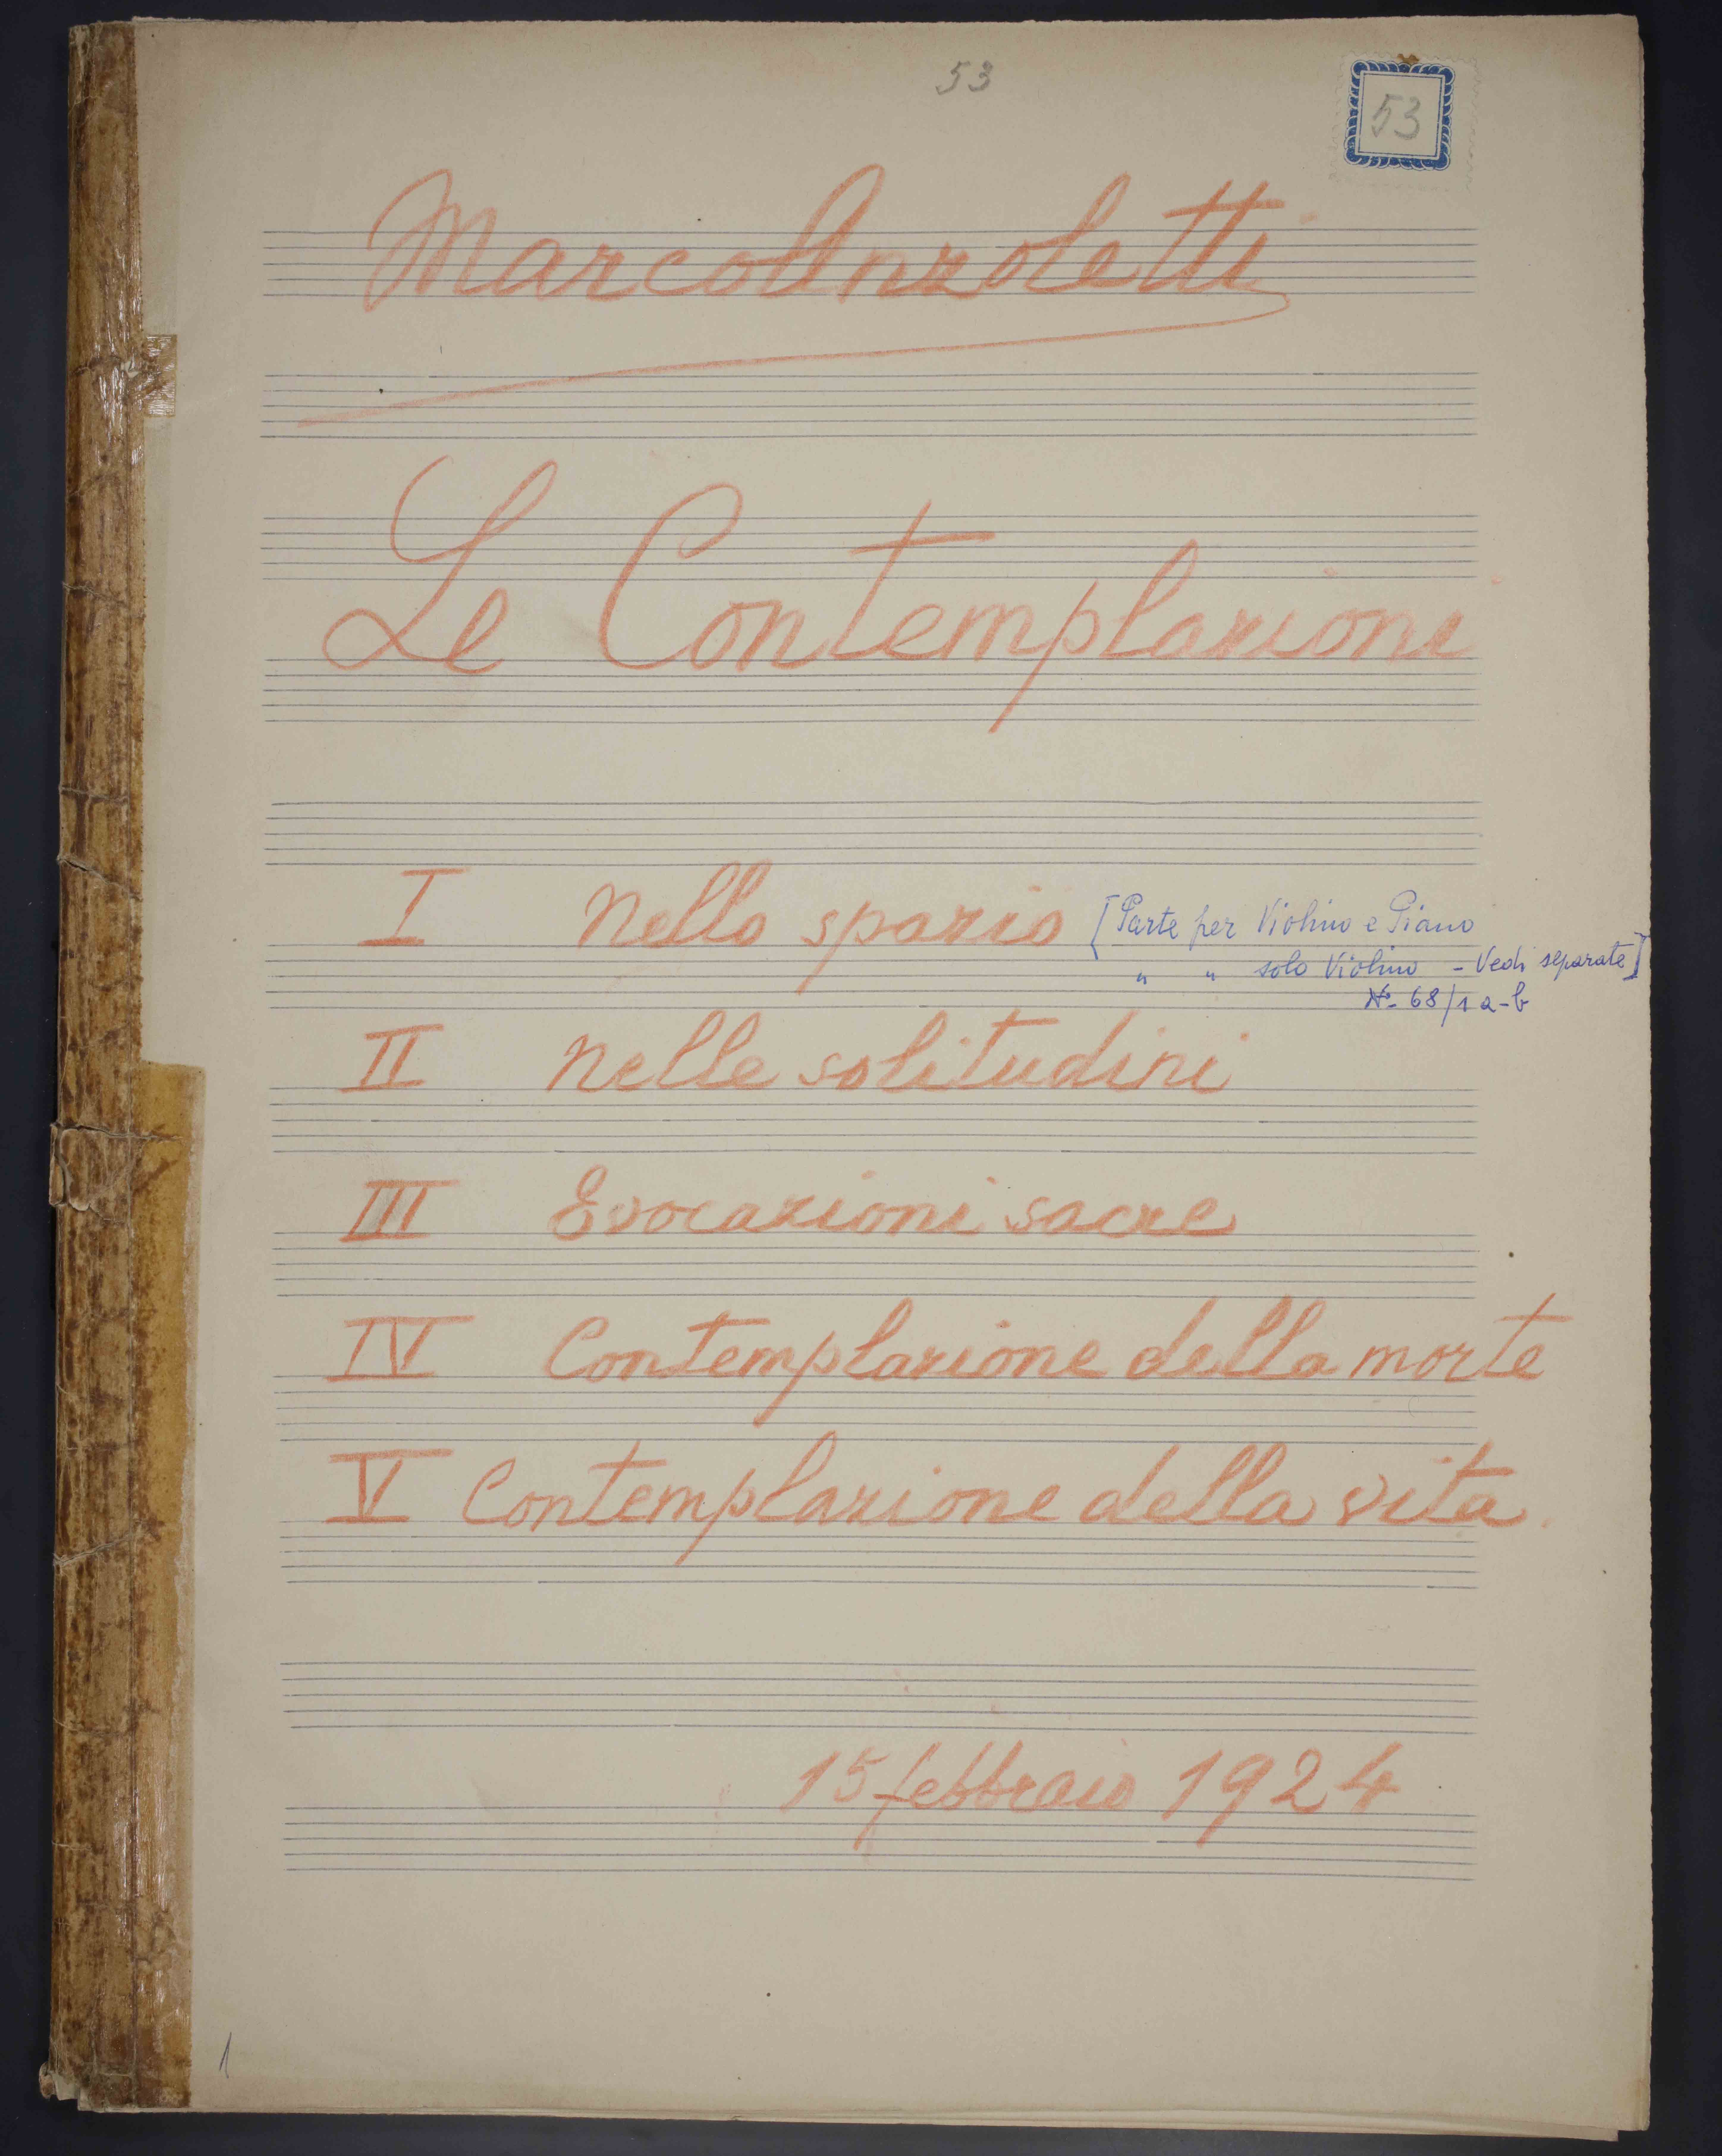 53
53
Marco Anzoletti
Le Contemplazioni
I Nello spazio [Parte per Violino e Piano
" " solo Violino - Vedi separate]
No 68/1 a-b
II Nelle solitudini
III Evocazioni sacre
IV Contemplazione della morte
V Contemplazione della vita
15 febbraio 1924
1